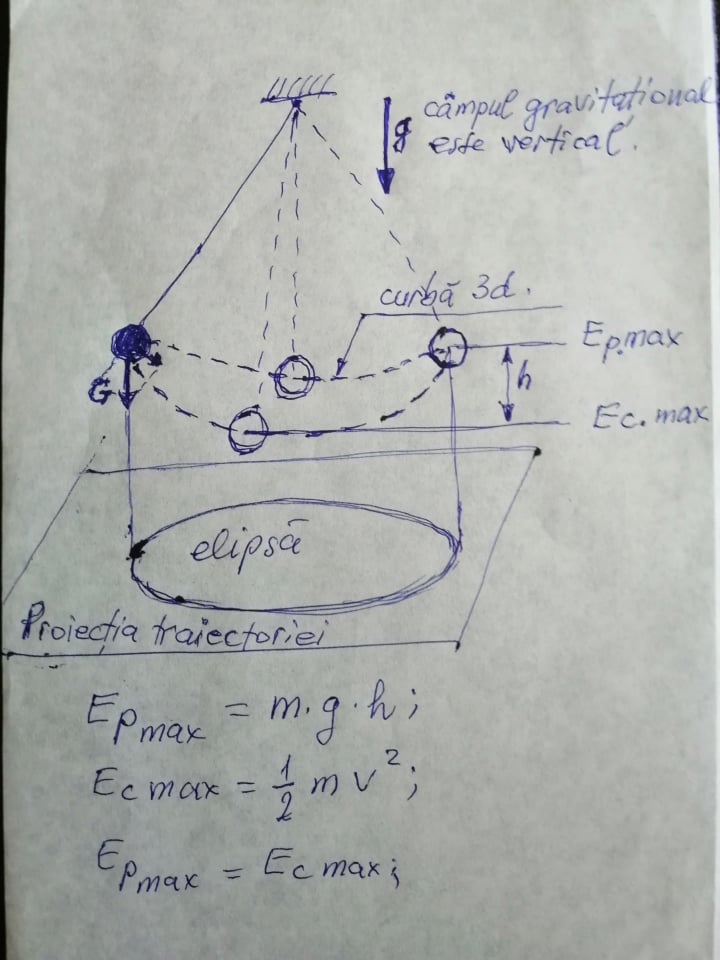 câmpul gravitațional
g
este vertical.
curbă 3d.
Ep.max
h
G
Ec.max
elipsă
Proiecția traiectoriei
Epmax = m·g·h;
Ec max = 1/2 m v²;
Epmax = Ec max;